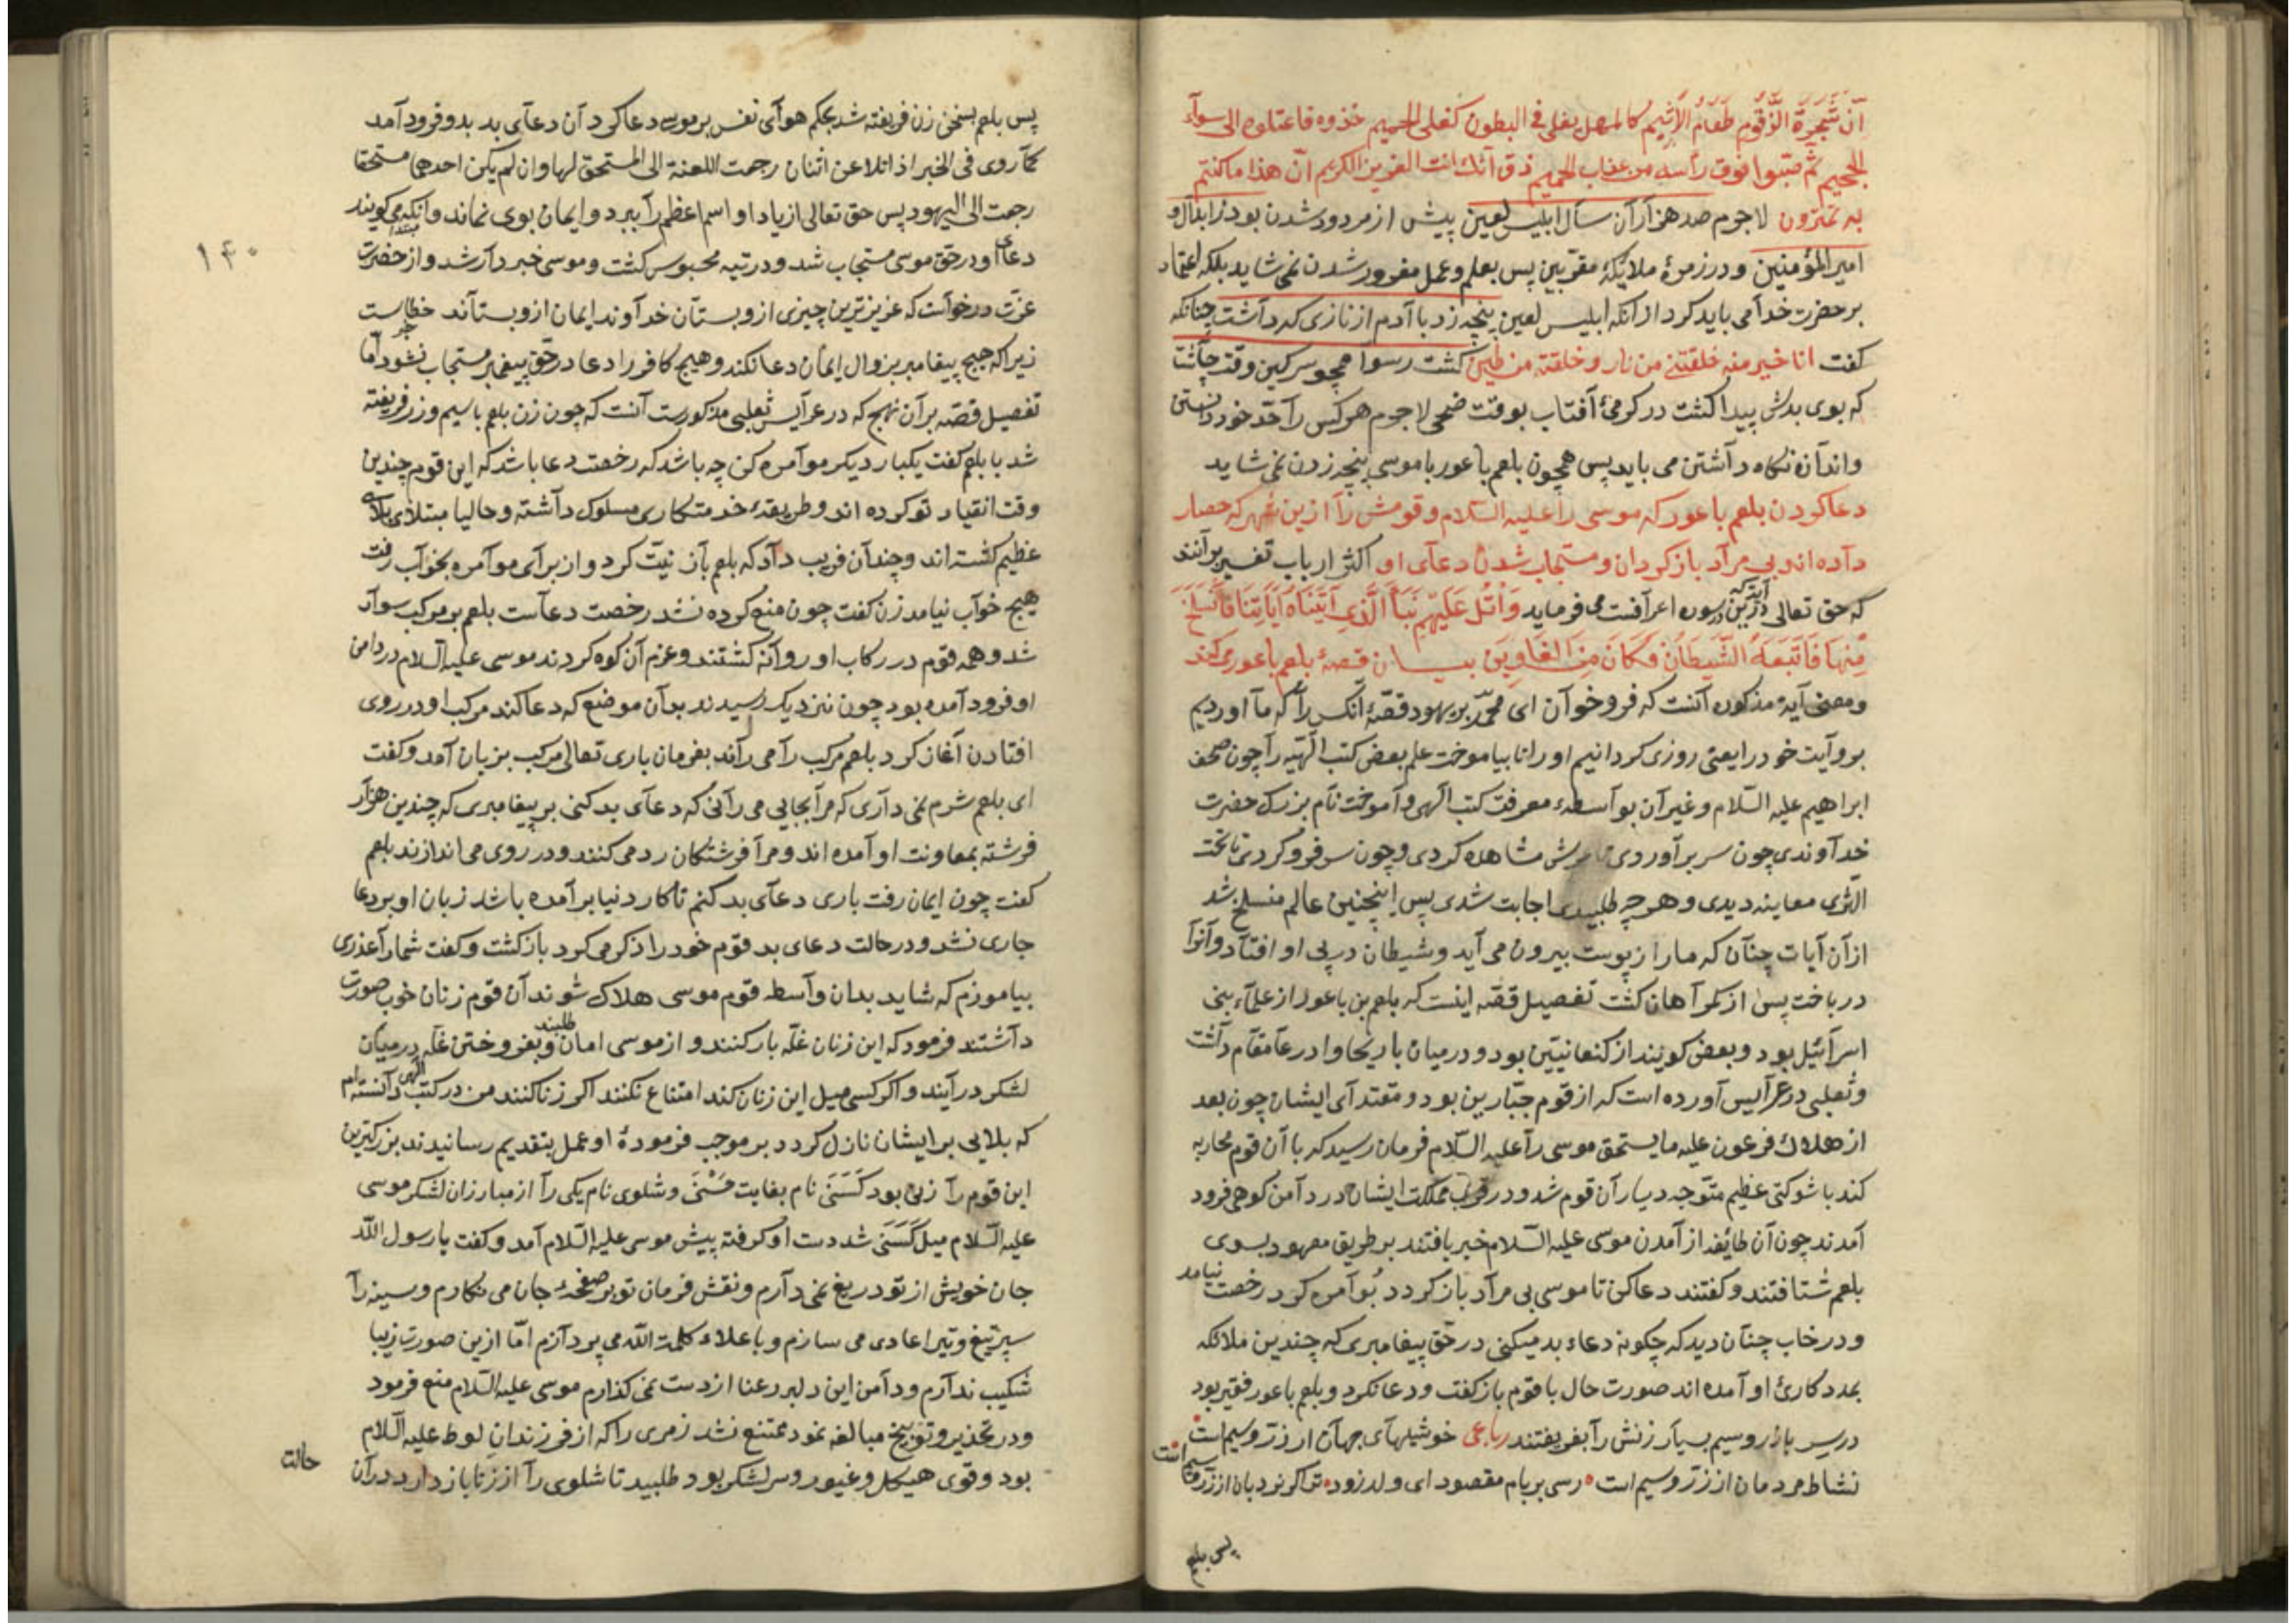 انّ شَجَرَةَ الزَّقُّومِ طَعَامُ الْأَثِيمِ كالمهل يغلى فى البطون كغلى الحميم خذوه فاعتلوه الى سوآء
الجحيم ثم صبّوا فوق رأسه من عذاب الحميم ذق انّك انت العزيز الكريم انّ هذا ما كنتم
به تمترون لاجرم صد هزآرآن سآل ابليس لعين پيش از مردود شدن بود ز ابدآل و
امير المؤمنين و در زمرهٔ ملايكهٔ مقرّبين پس بعلم و عمل مغرور شدن نمى شايد بلكه اعتماد
بر حضرت خدآ مى بايد كرد از آنكه ابليس لعين پنجه زد با آدم از نازى كه دآشت چنانكه
كفت انا خير منه خلقتنى من نار و خلقته من طين كشت رسوآ همچو سركين وقت چآشت
كه بوى بدش پيدا كشت در كرمىٔ آفتاب بوقت ضحى لاجرم هر كس رآ حدّ خود دانستن
و اندآزه نكاه دآشتن مى بايد پس همچون بلعم باعور با موسى پنجه زدن نمى شايد
دعا كردن بلعم باعور كه موسى رآ عليه السّلام و قومش رآ ازين شهر كه حصار
دآده اند بى مرآد باز كردان و مستجاب شدن دعآى او اكثر ارباب تفسير برآنند
كه حق تعالى درين آيه كه در سوره اعرآفست مى فرمايد وَاتْلُ عَلَيْهِمْ نَبَأَ الَّذِى آتَيْنَاهُ آيَاتِنَا فَانْسَلَخَ
مِنْهَا فَاَتْبَعَهُ الشَّيْطَانُ فَكَانَ مِنَ الْغَاوِينَ بيان قصهٔ بلعم باعور مى كند
و معنى آيهٔ مذكوره آنست كه فرو خوآن اى محمّد بر يهود قصّهٔ آنكس رآ كه ما آورديم
برو آيت خود را يعنى روزى كردانيم او را تا بياموخت علم بعض كتب الٓهيّه رآ چون صحف
ابراهيم عليه السّلام و غير آن بوآسطهء معرفت كتب الهى و آموخت نام بزرك حضرت
خدآوندى چون سر برآوردى عرش مشاهده كردى و چون سر فرو كردى تا تحت
الثرى معاينه ديدى و هر چه طلبيدى اجابت شدى پس اينچنين عالم منسلخ شد
از آن آيات چنآن كه مار از پوست بيرون مى آيد و شيطان در پى او افتاد و آنرا
دريافت پس از كمرآهان كشت تفصيل قصّه اينست كه بلعم بن باعور از علمآء بنى
اسرآئيل بود و بعضى كويند از كنعانيّين بود و در ميان باريحا وا درعا مقام دآشت
و ثعلبى در عرآيس آورده است كه از قوم جبّارين بود و مقتدآى ايشان چون بعد
از هلاك فرعون عليه ما يستحق موسى رآ عليه السّلام فرمان رسيد كه با آن قوم محاربه
كند با شوكتى عظيم متوجه ديار آن قوم شد و در قرب مملكت ايشان در دآمن كوهى فرود
آمدند چون آن طائفه از آمدن موسى عليه السّلام خبر يافتند بر طريق معهود بسوى
بلعم شتافتند و كفتند دعا كن تا موسى بى مرآد باز كردد بوآمره كرد رخصت نيامد
و در خاب چنآن ديد كه چكونه دعاء بد ميكنى در حقّ پيغامبرى كه چندين ملائكه
بمدد كارئ او آمده اند صورت حال با قوم باز كفت و دعا نكرد و بلعم باعور فقير بود
در سر بازر و سيم بسيآر زنش رآ بفريفتند رباعى خوشيلهآى جهآن از زرّ و سيم است
نشاط مردمان از زرّ و سيم است رسى بر بام مقصود اى ولد زود ترا كر نردبان از زرّ و سيم است
پس بلعم
پس بلعم بسخن زن فريفته شد بحكم هوآى نفس بر موسى دعا كرد آن دعآى بد بدو فرود آمد
كمآ روى فى الخبر اذا تلاعن اثنان رجعت اللعنة الى المستحق لها و ان لم يكن احدهما مستحقا
رجعت الى اليهود پس حق تعالى از ياد او اسم اعظم رآ ببرد و ايمان بوى نماند و آنكه مى كويند
دعاى او در حق موسى مستجاب شد و در تيه محبوس كشت و موسى خبردآر شد و از حضرت
عزّت درخوآست كه عزيزترين چيزى ازو بستآن خدآوند ايمان ازو بستآند خطاست
زيرا كه هيچ پيغامبر بزوال ايمان دعا نكند و هيچ كافر را دعا در حق پيغمبر مستجاب نشود امّا
تفصيل قصّه بر آن نهج كه در عرآيس ثعلبى مذكورست آنست كه چون زن بلعم با سيم و زر فريفته
شد با بلعم كفت يكبار ديكر موآمره كن چه باشد كه رخصت دعا باشد كه اين قوم چندين
وقت انقياد تو كرده اند و طريقهء خدمتكارى مسلوك دآشته و حاليا مبتلاى بلاى
عظيم كشته اند و چندآن فريب دآد كه بلعم باز نيّت كرد و از برآى موآمره بخوآب رفت
هيچ خوآب نيامد زن كفت چون منع كرده نشد رخصت دعآست بلعم بر مركب سوآر
شد و همه قوم در ركاب او روآنه كشتند و عزم آن كوه كردند موسى عليه السلام در دامن
او فرود آمده بود چون نزديك رسيدند بدآن موضع كه دعا كند مركب او در روى
افتادن آغاز كرد بلعم مركب رآ مى رآند بفرمان بارى تعالى مركب بزبان آمد و كفت
اى بلعم شرم نمى دآرى كه مرآ بجايى مى رآنى كه دعآى بد كنى بر پيغامبرى كه چندين هزآر
فرشته بمعاونت او آمده اند و مرآ فرشتكان رد مى كنند و در روى مى اندازند بلعم
كفت چون ايمان رفت بارى دعآى بد كنم تا كار دنيا برآمده باشد زبان او بر دعا
جارى نشد و در حالت دعاى بد قوم خود را ذكر مى كرد باز كشت و كفت شما رآ عذرى
بياموزم كه شايد بدان وآسطه قوم موسى هلاك شوند آن قوم زنان خوب صورت
دآشتند فرمود كه اين زنان غلّه بار كنند و از موسى امان طلبند و بفروختن غلّه در ميان
لشكر درآيند و اكر كسى ميل اين زنان كند امتناع نكنند اكر زنا كنند من در كتب الهى دآنسته ام
كه بلايى بر ايشان نازل كردد بر موجب فرمودهٔ او عمل بتقديم رسانيدند بزركترين
اين قوم رآ زنى بود كَسَنَى نام بغايت حَسْنَى و شلوى نام يكى رآ از مبارزان لشكر موسى
عليه السّلام ميل كَسَنَى شد دست او كرفته پيش موسى عليه السّلام آمد و كفت يا رسول اللّه
جان خويش از تو دريغ نمى دآرم و نقش فرمان تو بر صفحهء جان مى نكارم و سينه رآ
سپر تيغ و تير اعادى مى سازم و با علاء كلمة اللّه مى پردآزم امّا ازين صورت زيبا
شكيب ندآرم و دآمن اين دلبر رعنا از دست نمى كذارم موسى عليه السّلام منع فرمود
و در تحذير و توبيخ مبالغه نمود ممتنع نشد زمرى را كه از فرزندان لوط عليه السّلام
بود و قوى هيكل و غيور و سر لشكر بود طلبيد تا شلوى رآ از زنا باز دارد در آن
حالت
١٤٠